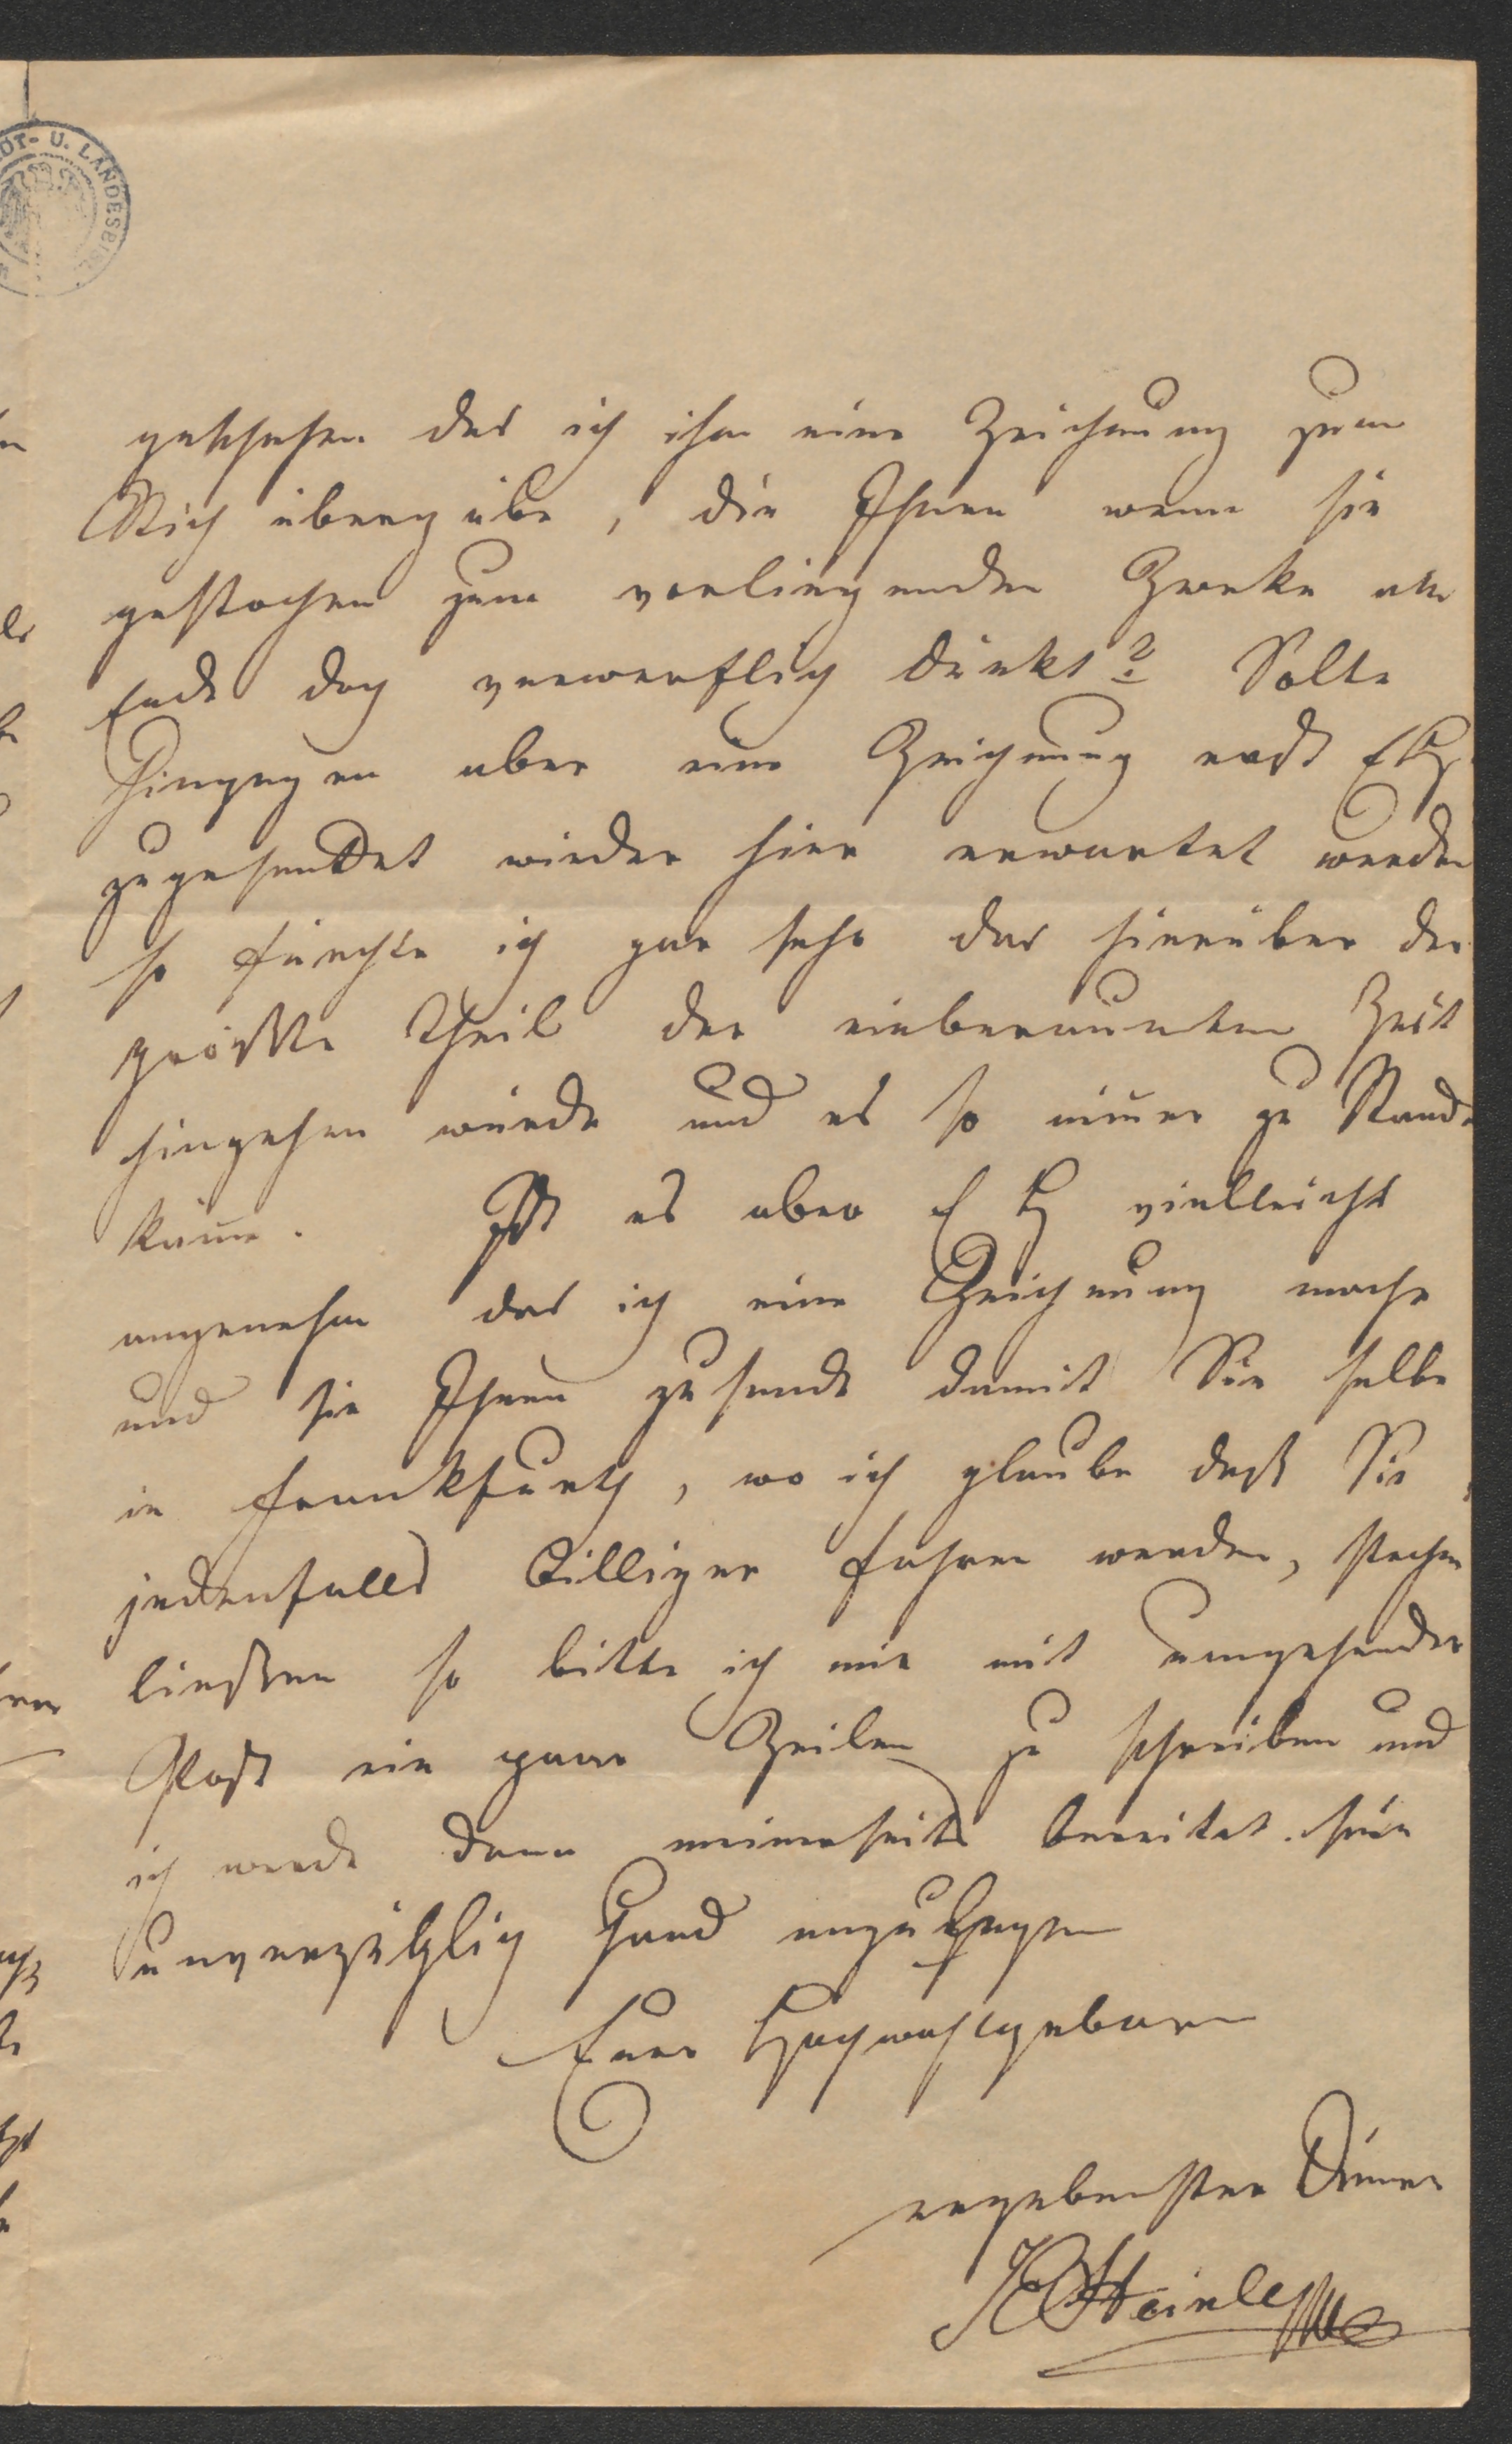 DT- U. LANDESBIBL.
geschehen das ich ihm eine Zeichnung zum
Stich übergäbe, die Ihnen wenn sie
gestochen zum vorliegenden Zweke am
Ende doch verwerflich dünkt? Solte
hingegen aber eine Zeichnung erst EH.
zugesendet wieder hier erwartet werden
so fürchte ich gar sehr das hierüber der
größte Theil der einberaumten Zeit
hingehen würde und es so nimer zu Stande
käme. Ist es aber E H vielleicht
angenehm das ich eine Zeichnung mache
und sie Ihnen zusende damit Sie selbe
in Frankfurth, wo ich glaube daß Sie
jedenfalls billiger fahren werden, stechen
ließen so bitte ich mir mit umgehender
Post ein paar Zeilen zu schreiben und
ich werde dann meinerseits bereitet sein
unverzüglich Hand anzulegen
Euer Hochwohlgeboren
ergebenster Diener
Steinle